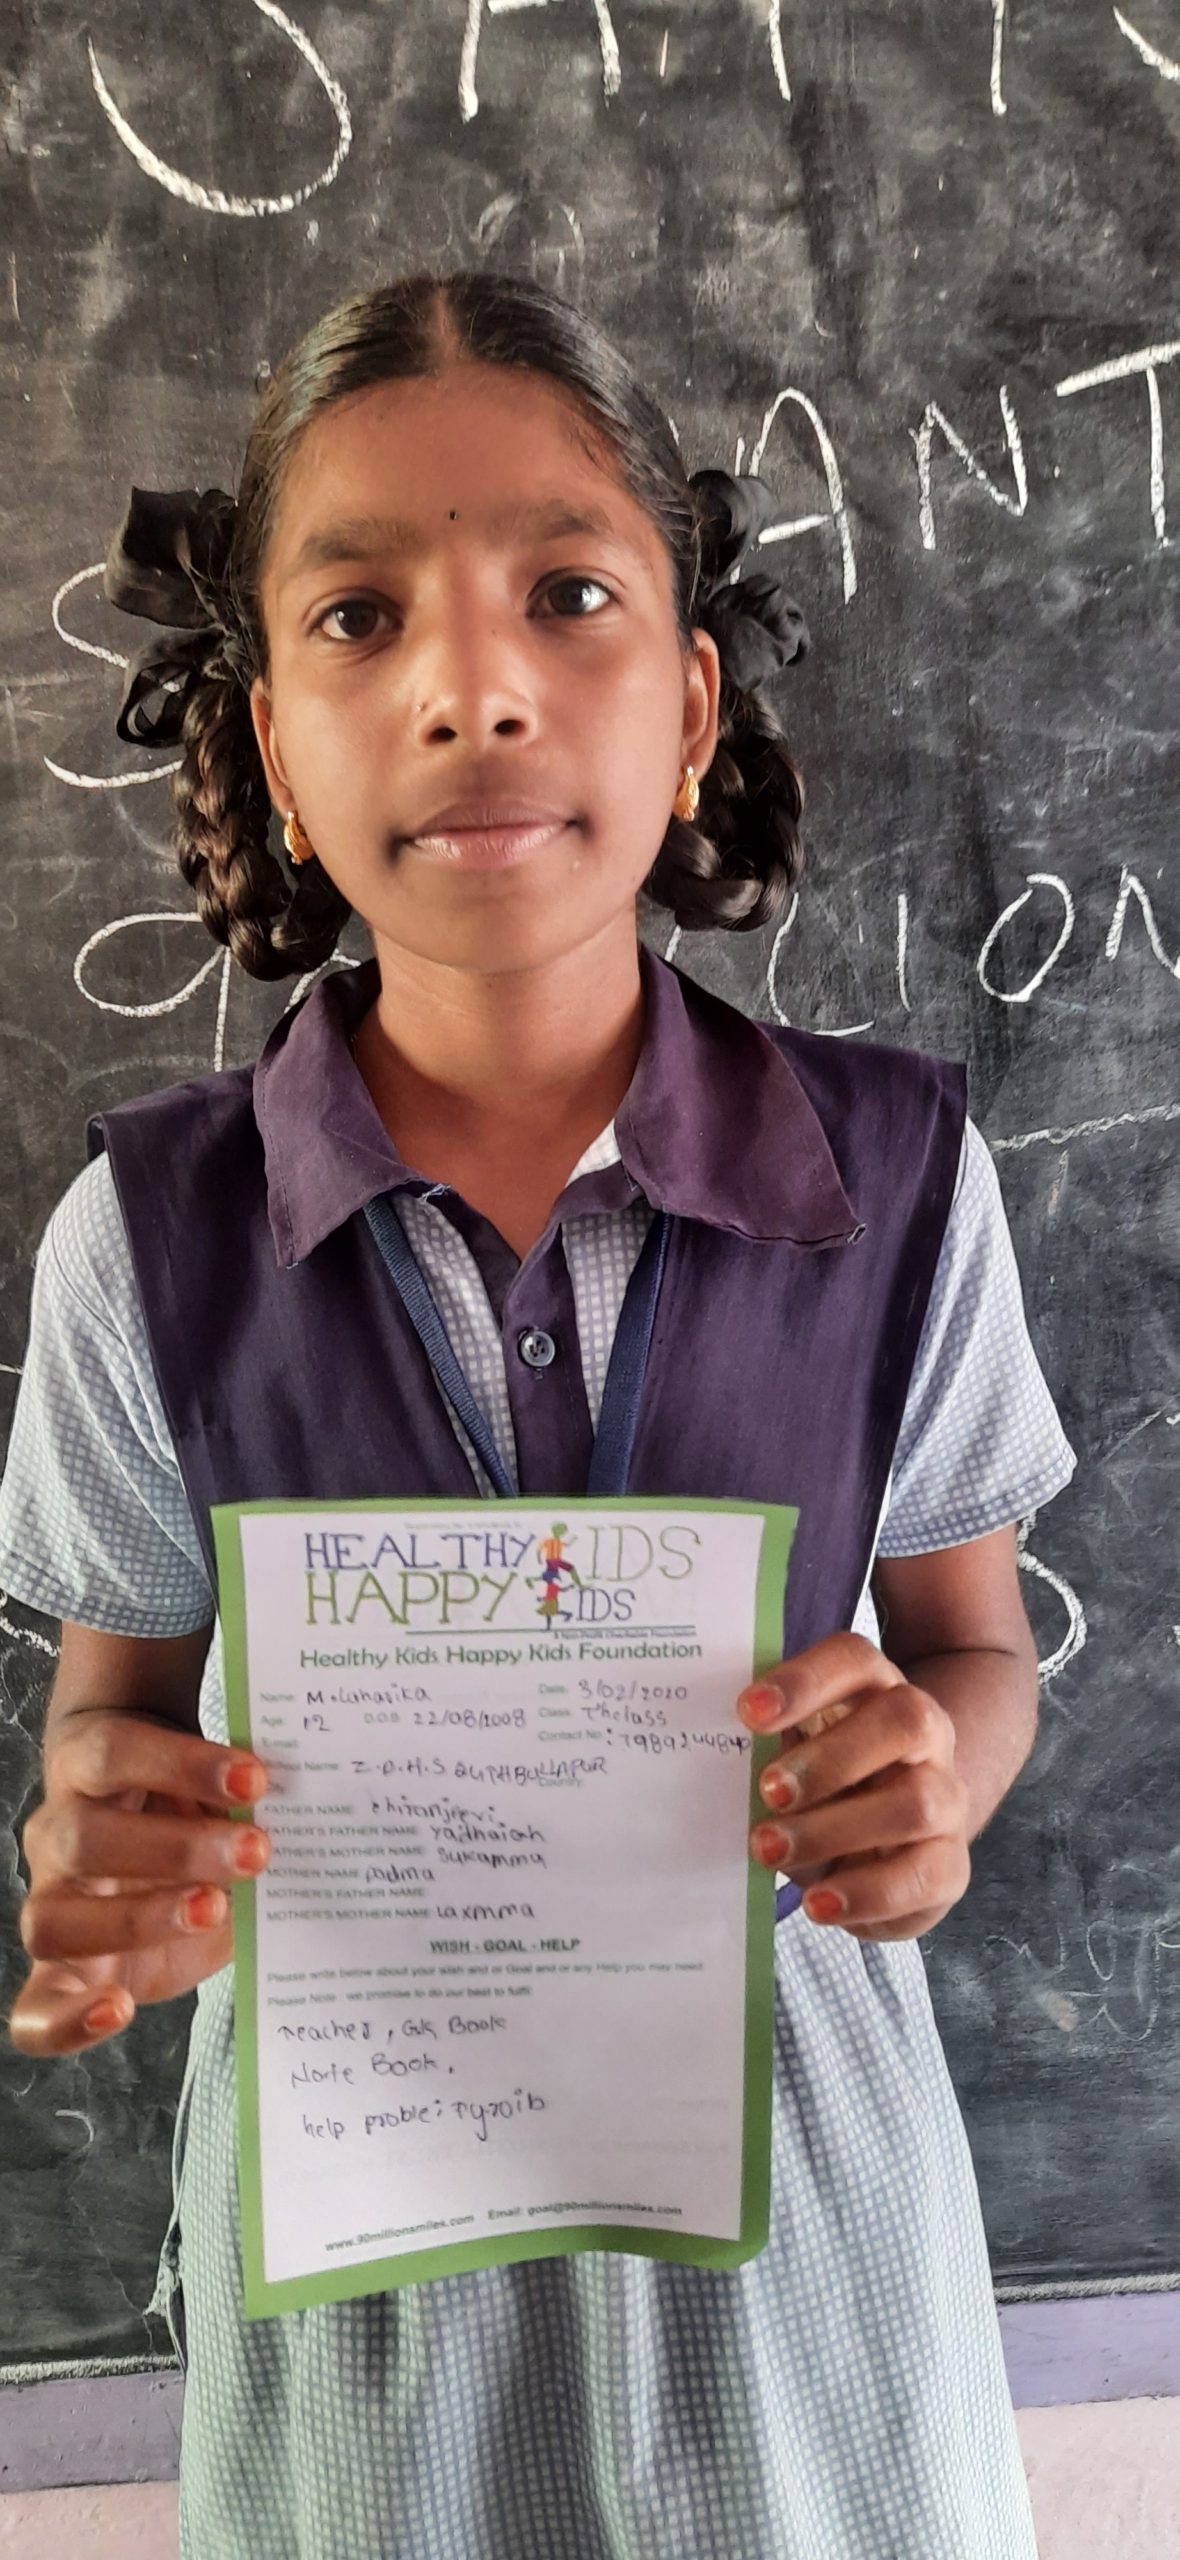 SHANT
ILLION
HEALTHY KIDS
HAPPY KIDS
A Non-Profit Charitable Foundation
Healthy Kids Happy Kids Foundation
Name: M. Laharika Date: 3/02/2020
Age: 12 D.O.B 22/08/2008 Class: 7th class
E-mail: Contact No:
School Name: Z.P.H.S QUTHBULLAPUR
City: Country:
FATHER NAME: chiranjeevi
FATHER'S FATHER NAME: Yadhaiah
FATHER'S MOTHER NAME: Sukamma
MOTHER NAME: Padma
MOTHER'S FATHER NAME:
MOTHER'S MOTHER NAME: Laxmma
WISH - GOAL - HELP
Please write below about your wish and or Goal and or any Help you may need
Please Note : we promise to do our best to fulfil
Teacher, GK Book
Norte Book.
help proble: Tyroib
www.90millionsmiles.com Email: goal@90millionsmiles.com